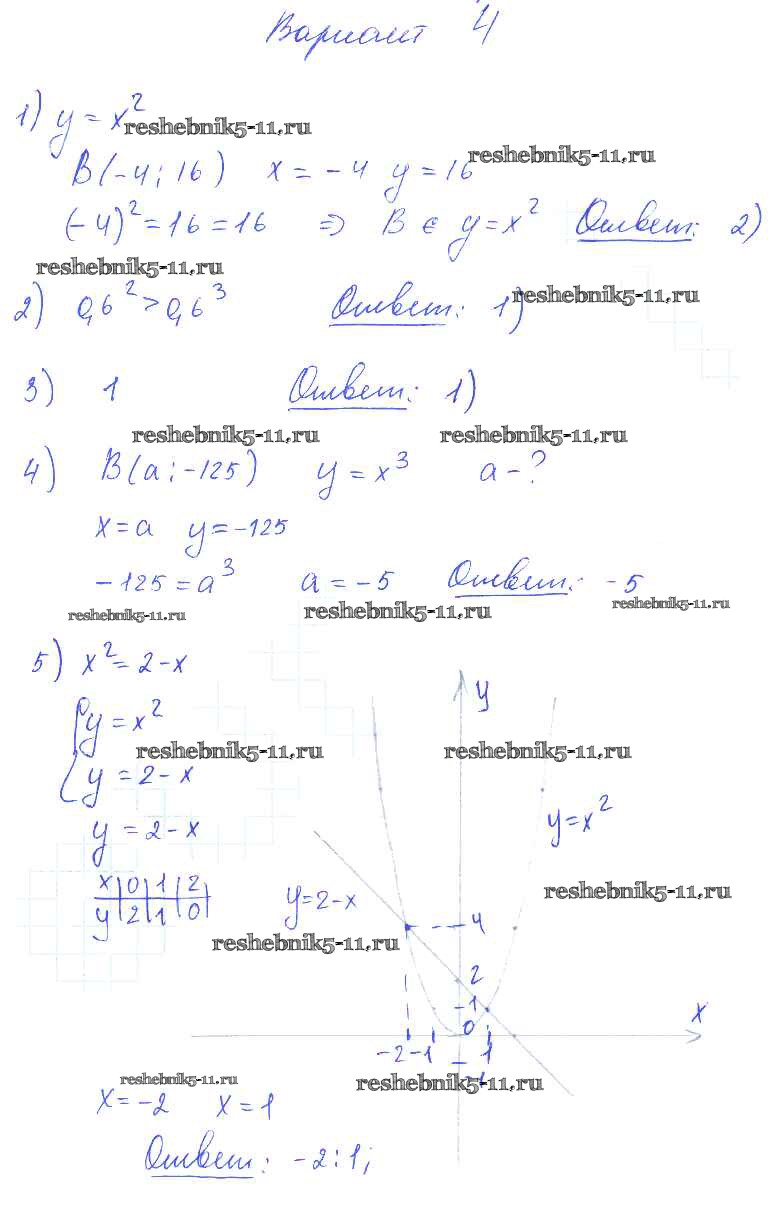 Вариант 4
1) y = x²
reshebnik5-11.ru
reshebnik5-11.ru
B(-4; 16) x = -4 y = 16
(-4)² = 16 = 16 ⇒ B ∈ y = x² Ответ: 2)
reshebnik5-11.ru
2) 0,6² > 0,6³ Ответ: 1)
reshebnik5-11.ru
3) 1 Ответ: 1)
reshebnik5-11.ru reshebnik5-11.ru
4) B(a; -125) y = x³ a - ?
x = a y = -125
-125 = a³ a = -5 Ответ: -5
reshebnik5-11.ru reshebnik5-11.ru reshebnik5-11.ru
5) x² = 2 - x
y
{ y = x²
reshebnik5-11.ru reshebnik5-11.ru
y = 2 - x
y = x²
y = 2 - x
x 0 1 2
y 2 1 0
y = 2 - x
reshebnik5-11.ru
reshebnik5-11.ru
4
2
1
0
x
-2 -1 1
-1
reshebnik5-11.ru reshebnik5-11.ru
x = -2 x = 1
Ответ: -2; 1;